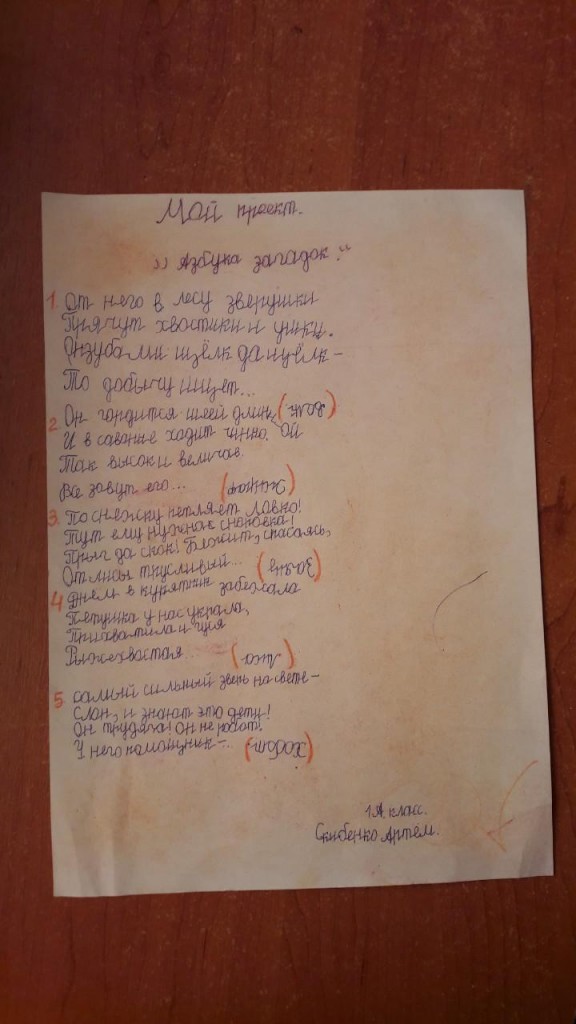 Мой проект.
,, Азбука загадок."
1. От него в лесу зверушки
Прячут хвостики и ушки.
Он зубами щёлк да щёлк -
То добычу ищет... (Волк)
2. Он гордится шеей длинной
И в саванне ходит чинно.
Так высок и величав
Все зовут его... (Жираф)
3. По снежку петляет ловко!
Тут ему нужна сноровка!
Прыг да скок! Бежит, спасаясь,
От лисы трусливый... (Заяц)
4 Днём в курятник забежала
Петушка у нас украла,
Прихватила и гуся
Рыжехвастая... (Лиса)
5. самый сильный зверь на свете -
Слон, и знают это дети!
Он трудяга! Он не робот!
У него помощник -... (Хобот)
1А класс.
Скибенко Артём.